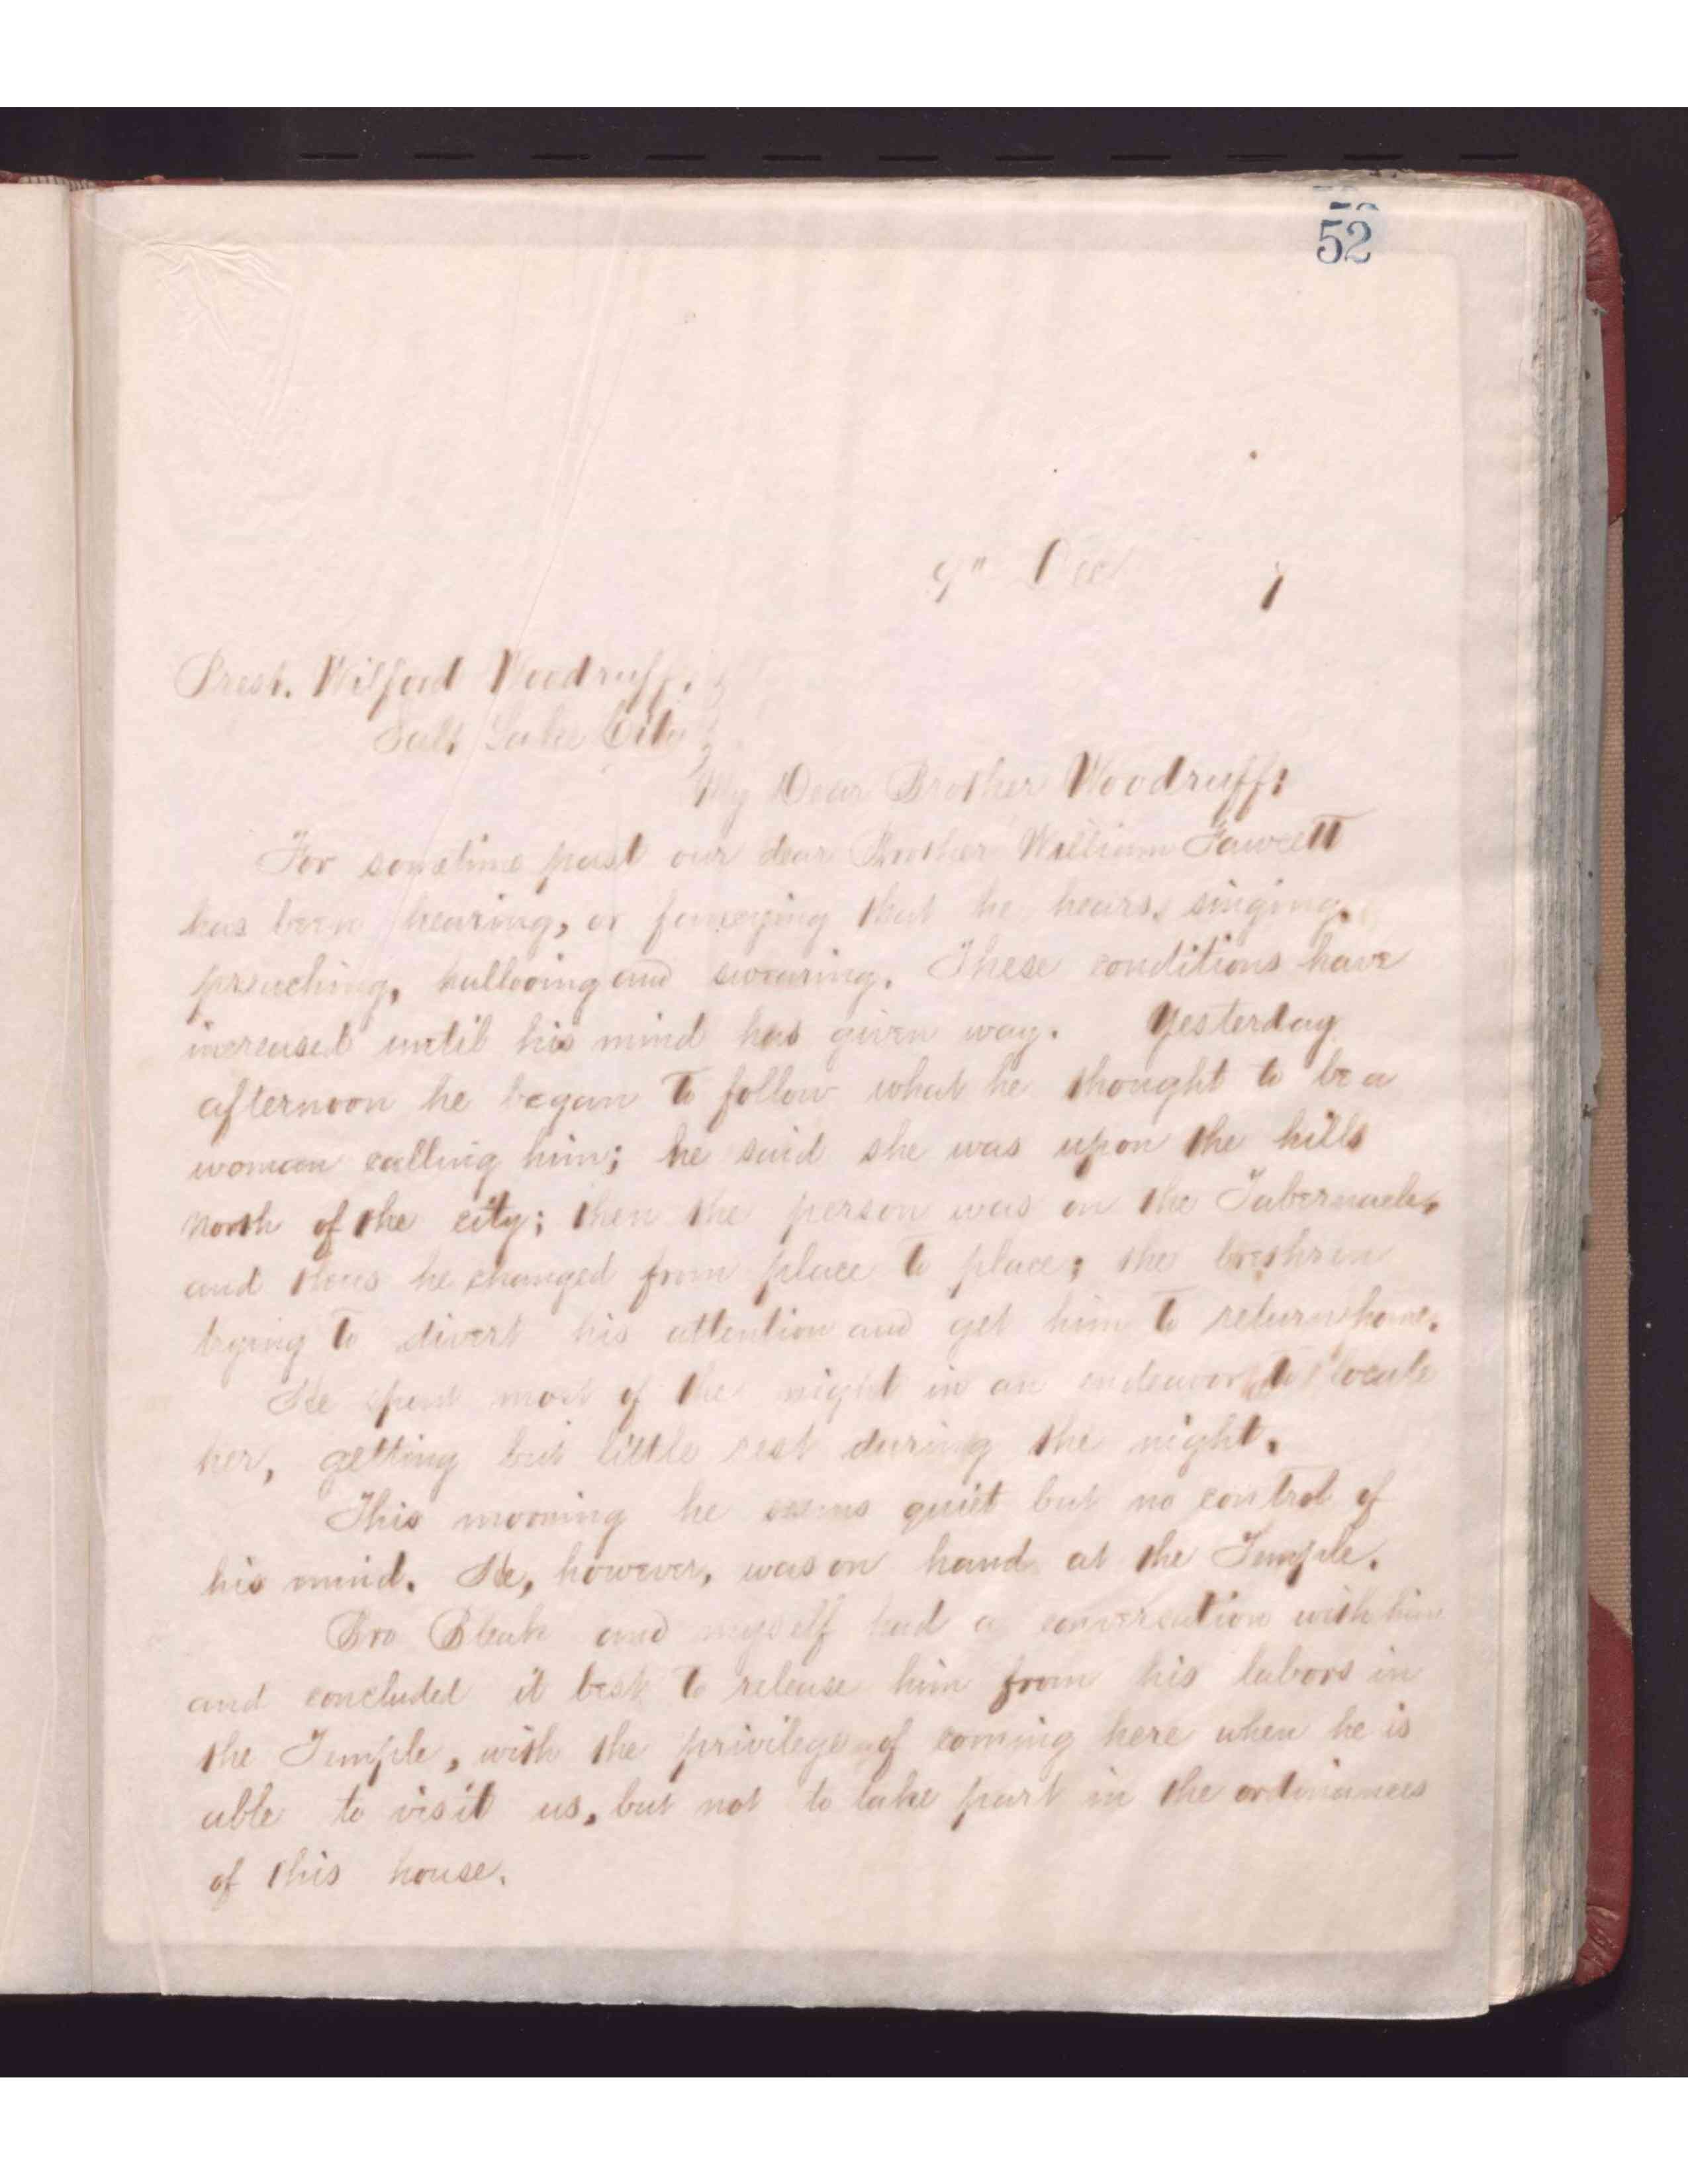 52
9" Dec 1
Prest. Wilford Woodruff.
Salt Lake City
My Dear Brother Woodruff:
For sometime past our dear Brother William Fawcett
has been hearing, or fancying that he hears, singing,
preaching, hallooing and swearing. These conditions have
increased until his mind has given way. Yesterday
afternoon he began to follow what he thought to be a
woman calling him; he said she was upon the hills
north of the city; then the person was on the Tabernacle,
and thus he changed from place to place; the brethren
trying to divert his attention and get him to return home.
He spent most of the night in an endeavor to locate
her, getting but little rest during the night.
This morning he seems quiet but no control of
his mind. He, however, was on hand at the Temple.
Bro Bleak and myself had a conversation with him
and concluded it best to release him from his labors in
the Temple, with the privilege of coming here when he is
able to visit us, but not to take part in the ordinances
of this house.